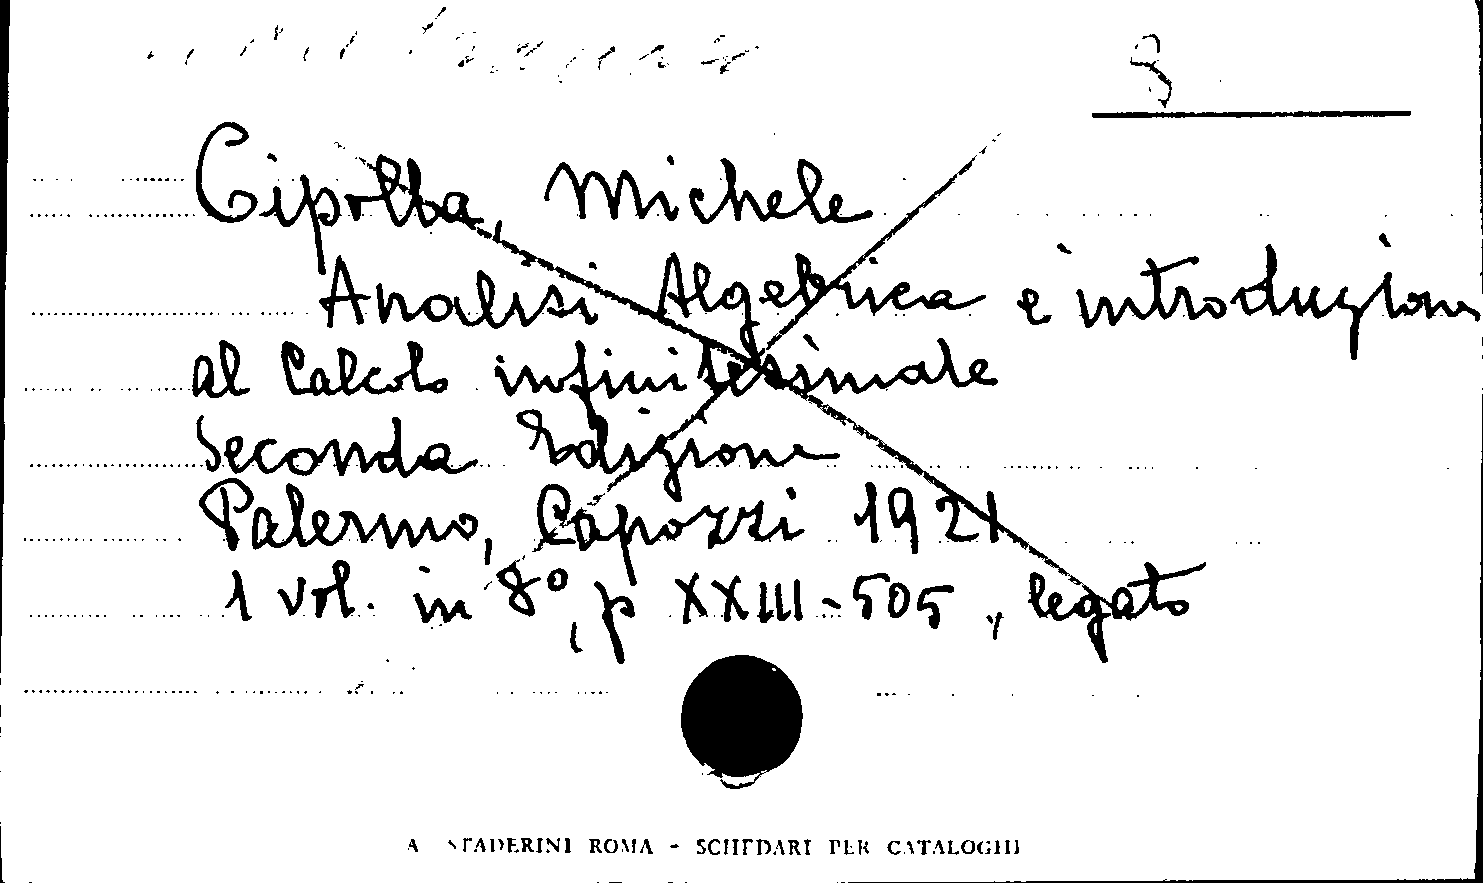 8
Cipolla, Michele
Analisi Algebrica e introduzione
al Calcolo infinitesimale
Seconda Edizione
Palermo, Capozzi 1921
1 vol. in 8°, p XXIII-505, legato
A STADERINI ROMA - SCHEDARI PER CATALOGHI